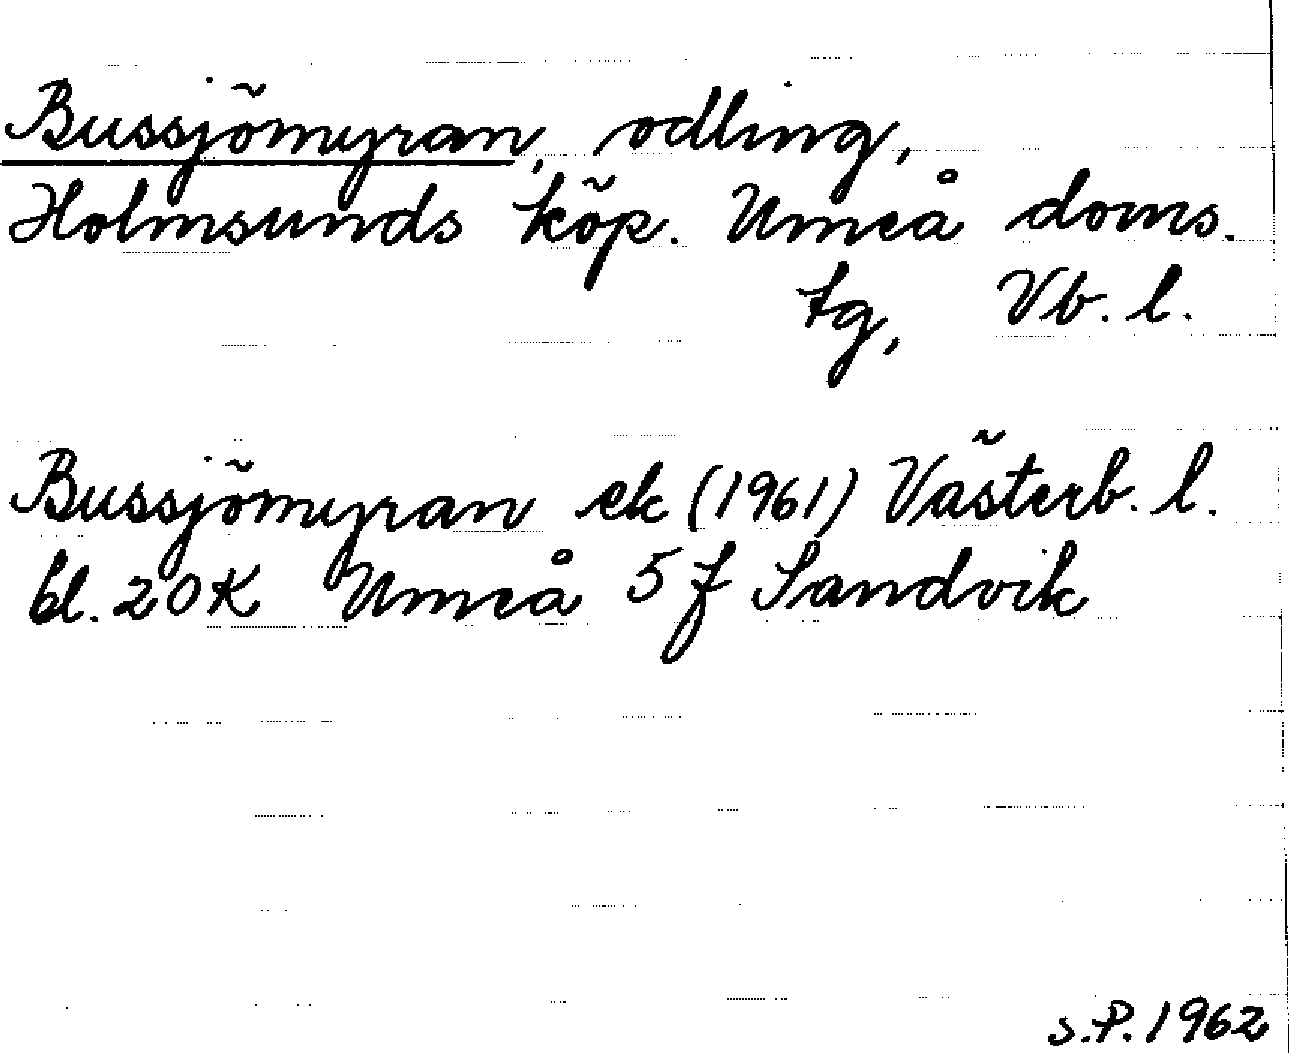 Bussjömyran, odling,
Holmsunds köp. Umeå doms.
tg, Vb. l.
Bussjömyran ek (1961) Västerb. l.
bl. 20K Umeå 5 f Sandvik
S.P. 1962